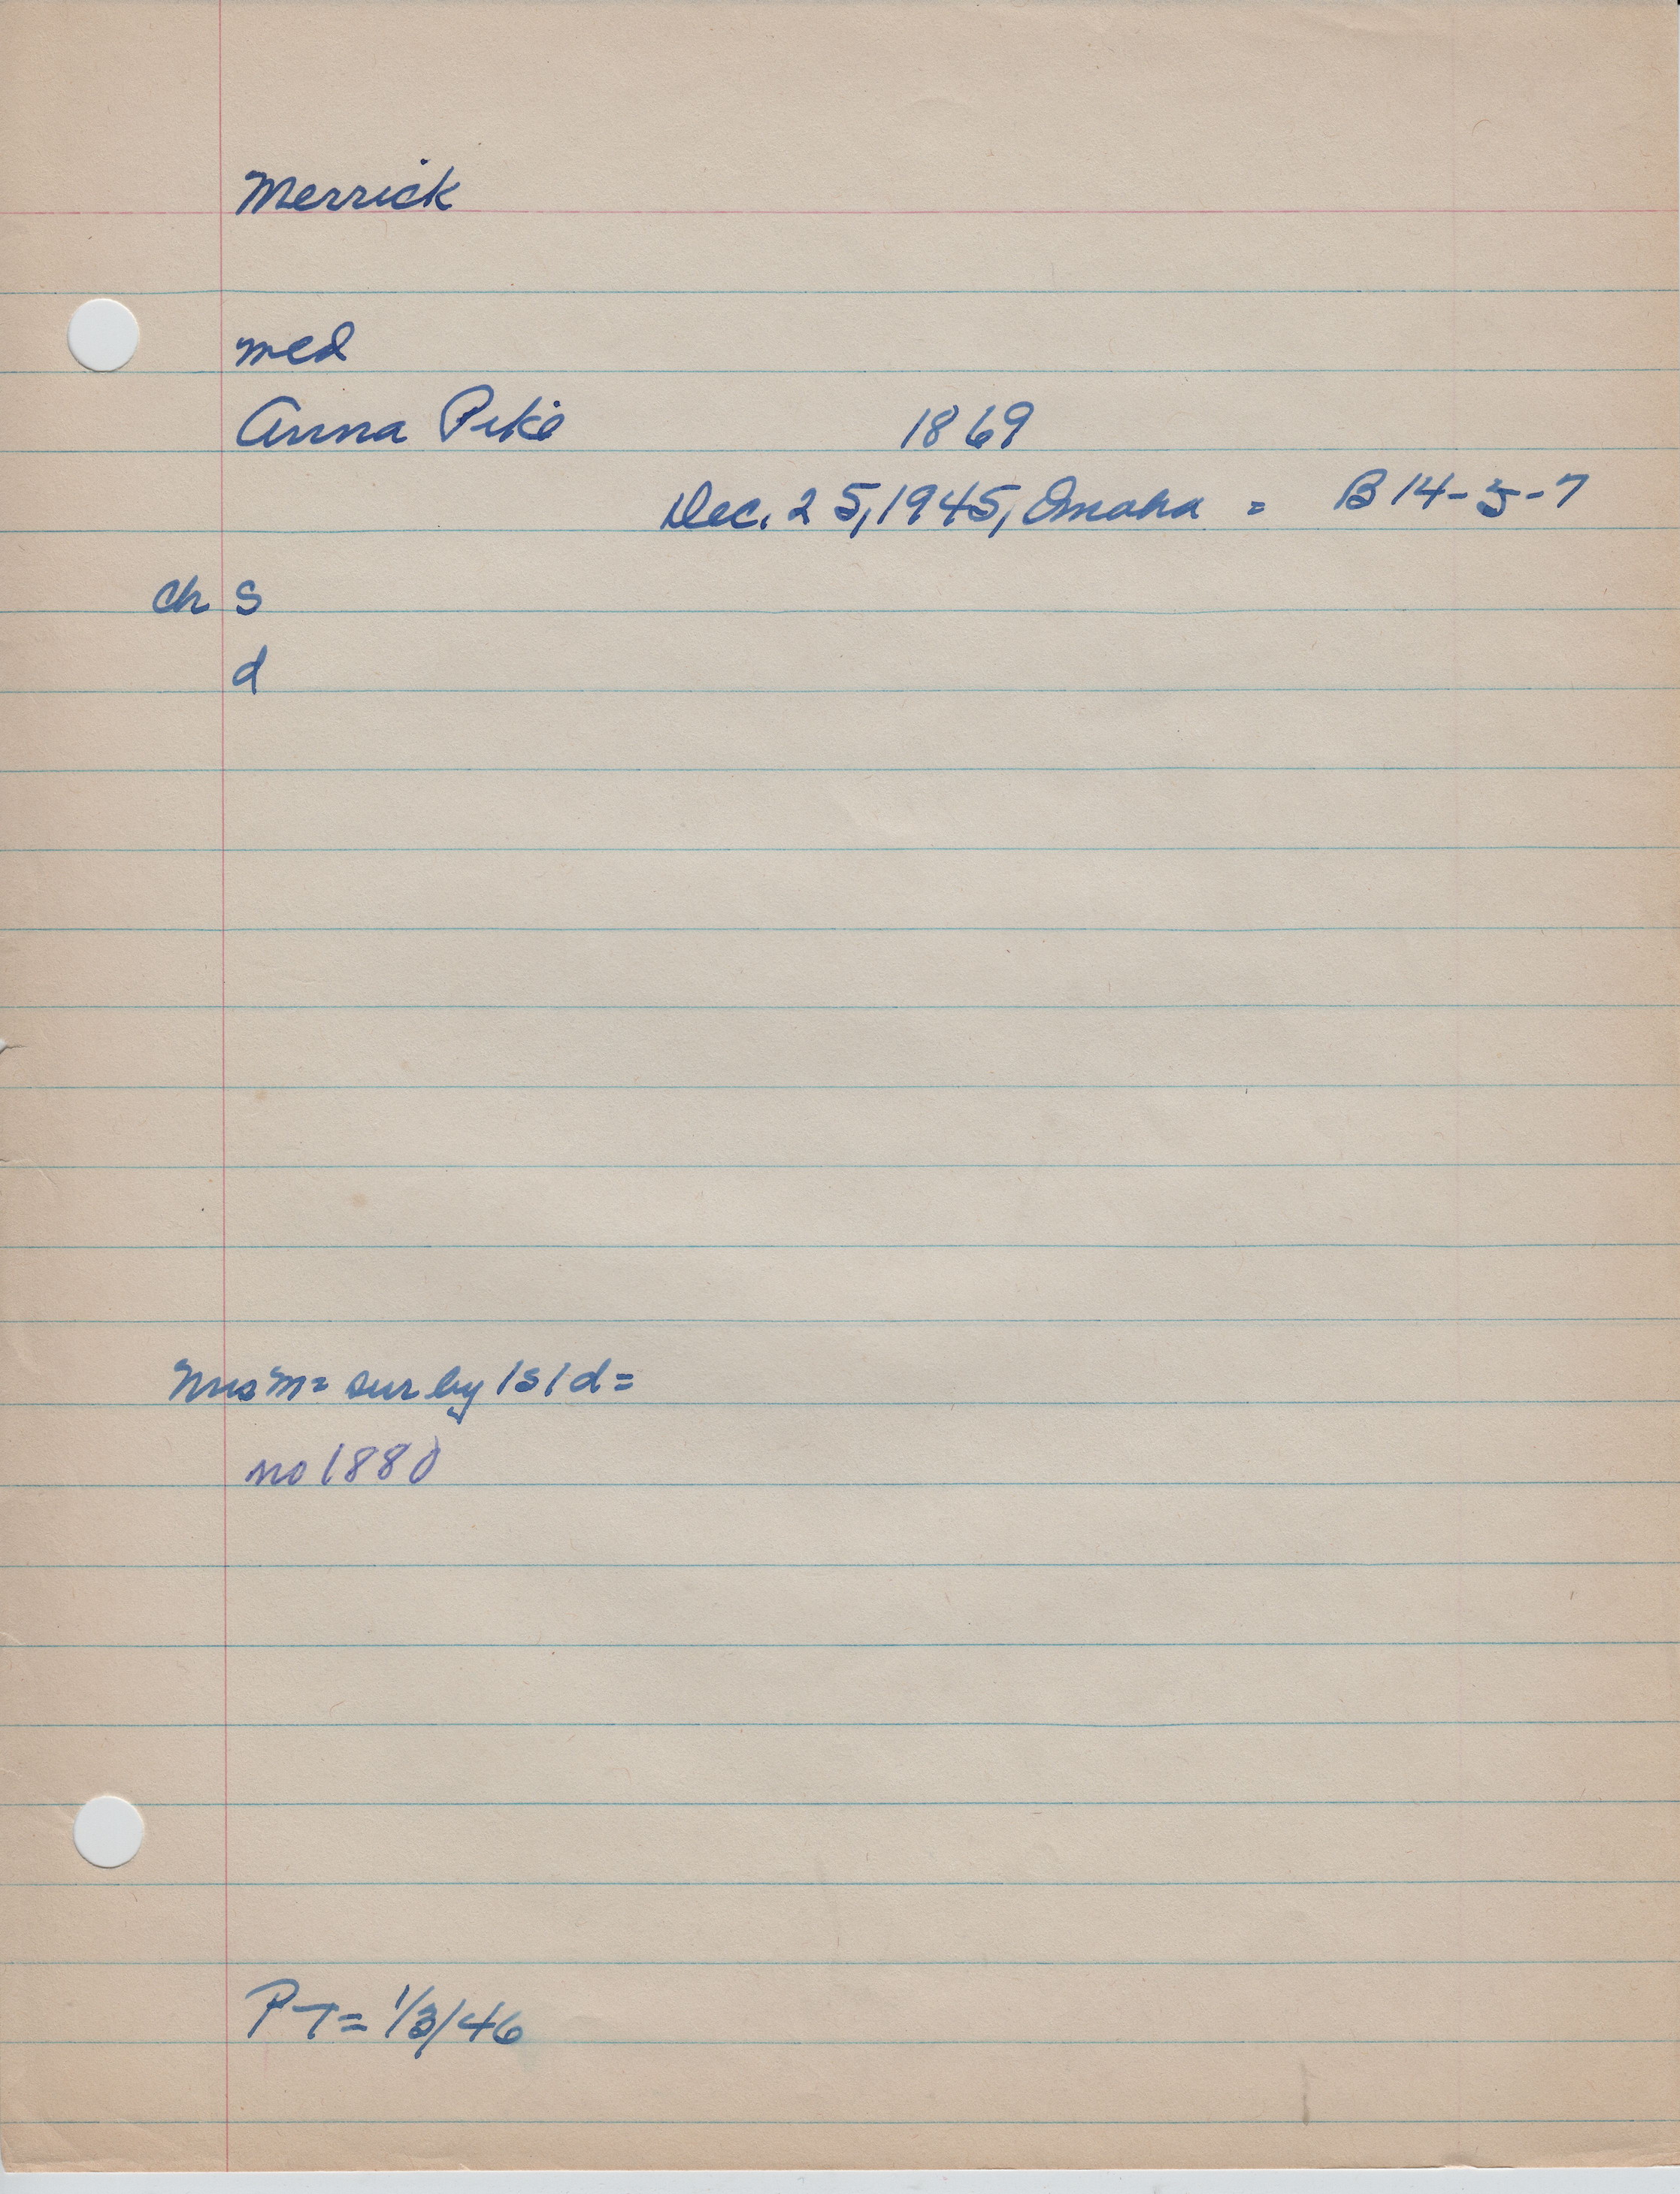 Merrick
med
Anna Pike 1869
Dec. 25, 1945, Omaha = B 14-5-7
ch s
d
Mrs M = sur by 1s 1d =
no 1880
PT = 1/3/46